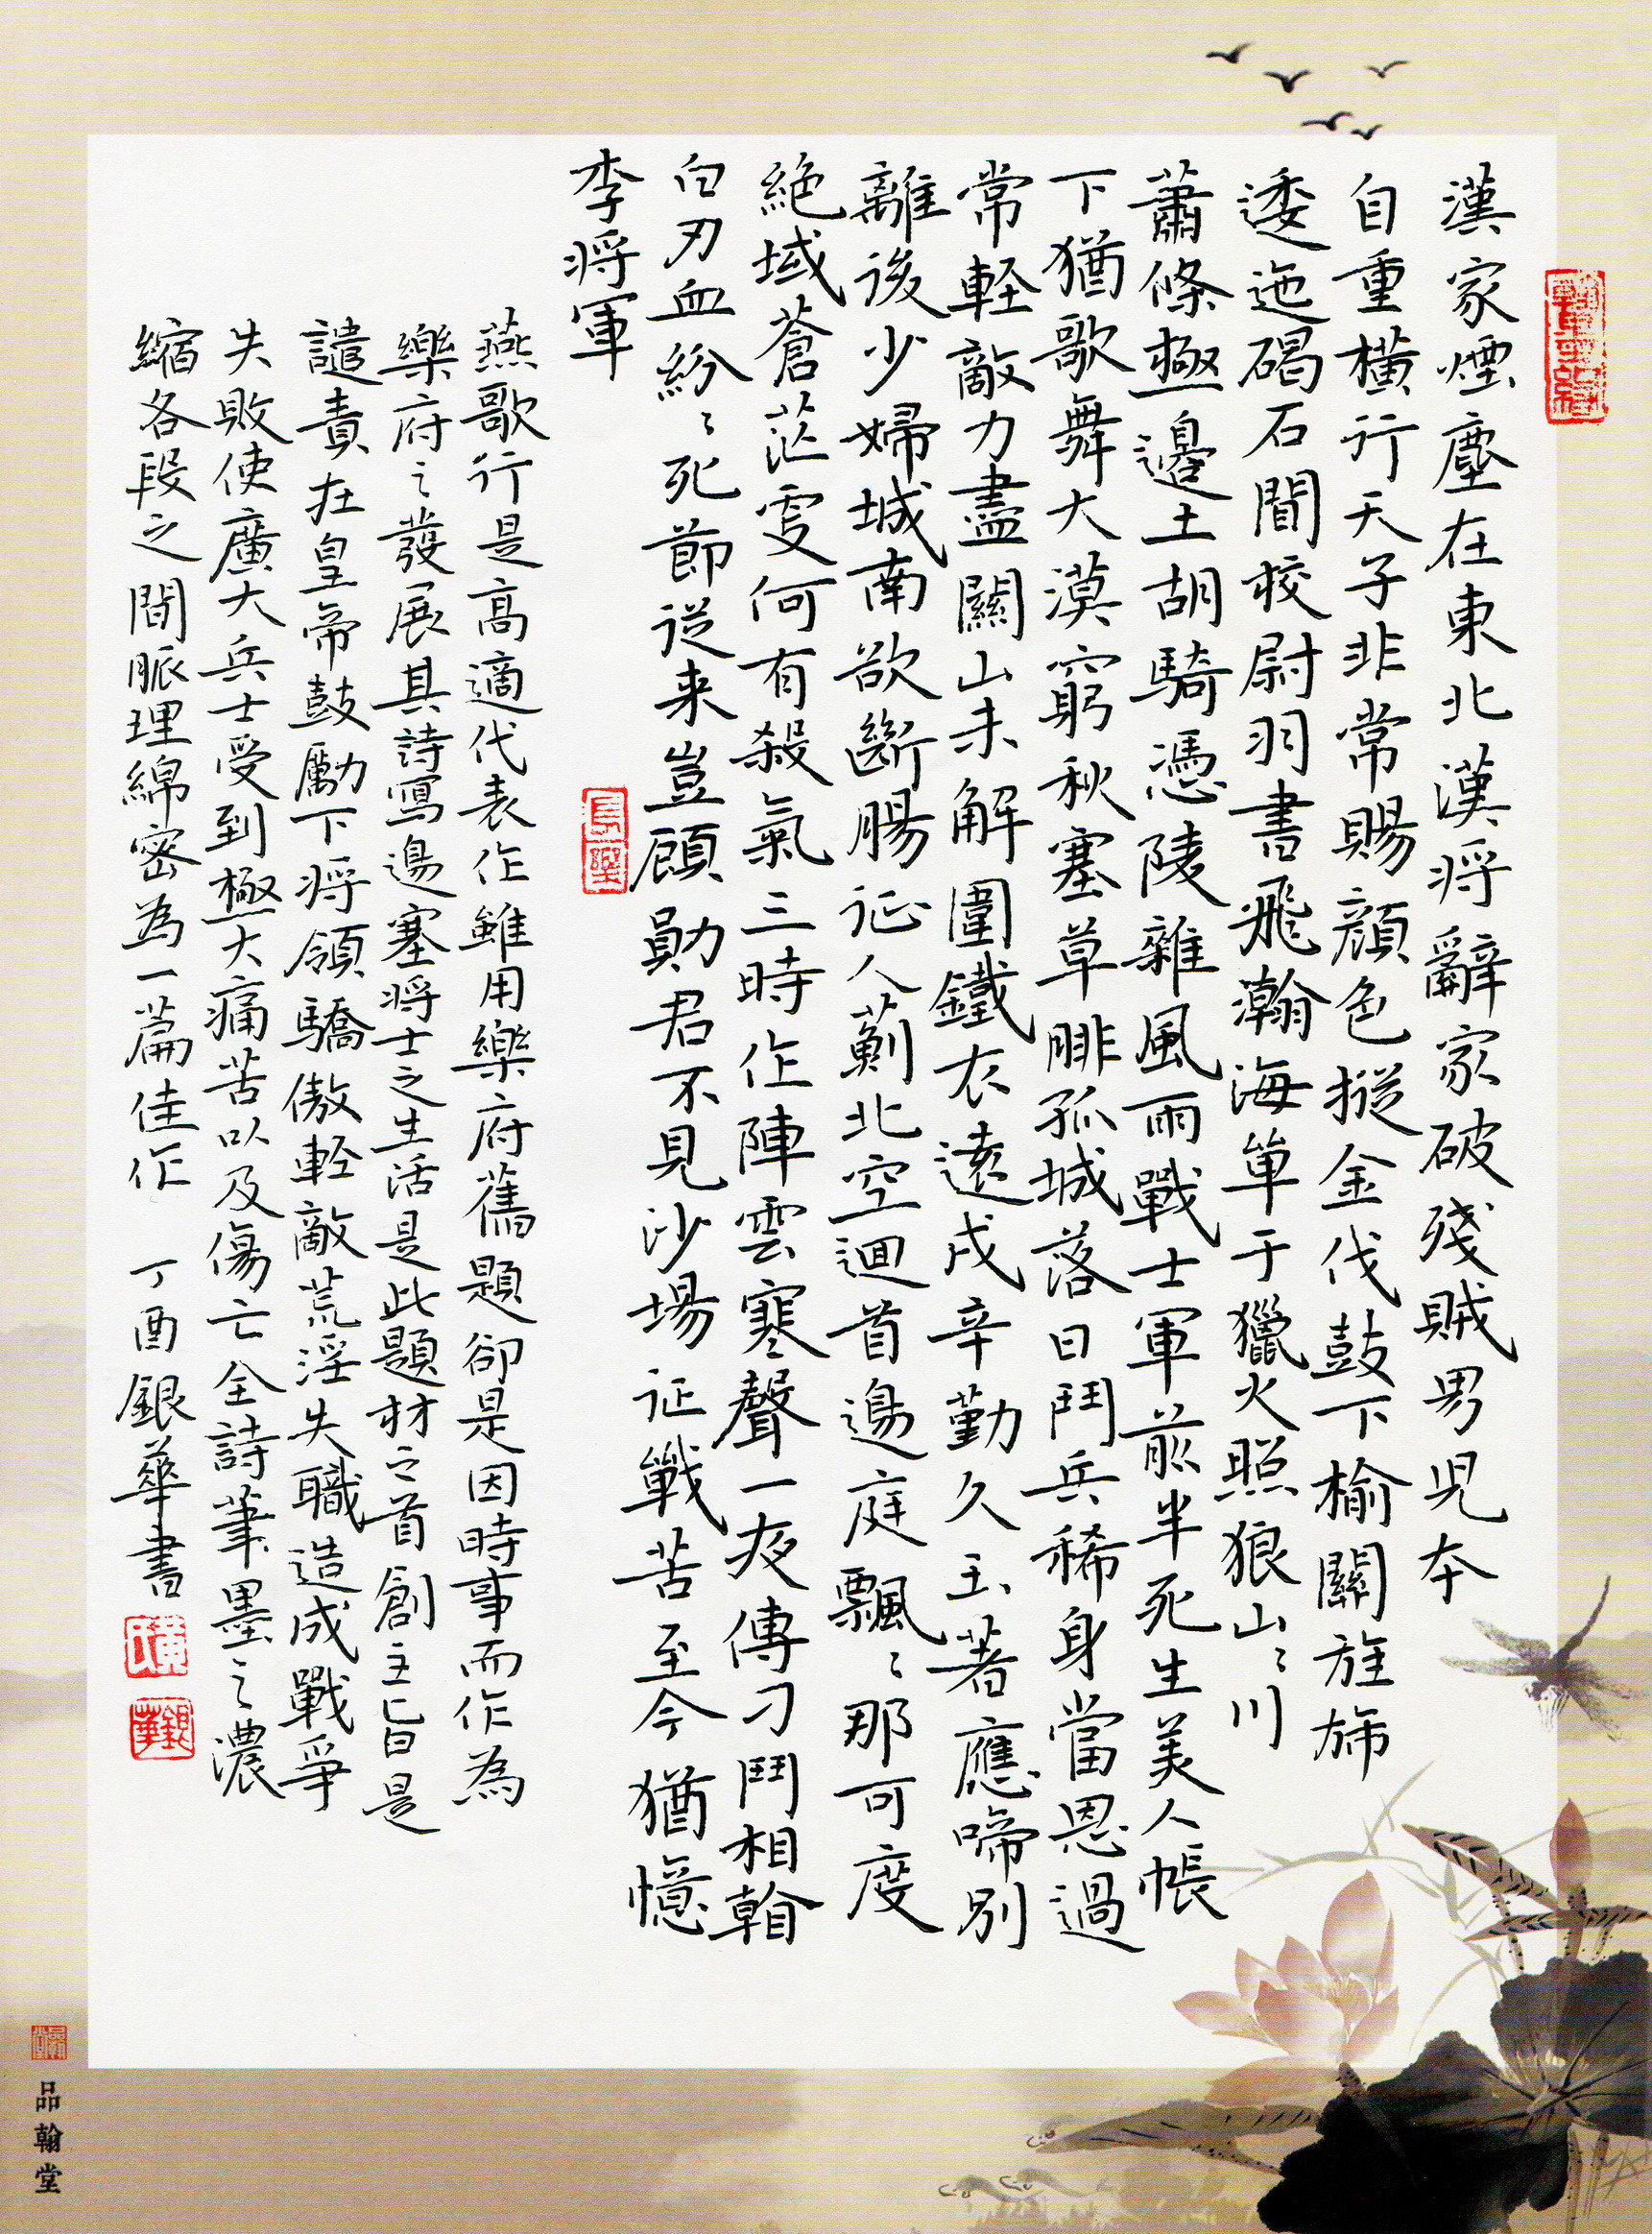 漢家煙塵在東北漢将辭家破殘賊男児本
自重橫行天子非常賜顏色摐金伐鼓下榆關旌旆
逶迤碣石間校尉羽書飛瀚海单于獵火照狼山〻川
蕭條極邊土胡騎憑陵雜風雨戰士軍前半死生美人帳
下猶歌舞大漠窮秋塞草腓孤城落日鬥兵稀身當恩過
常軽敵力盡關山未解圍鐵衣遠戍辛勤久玉著應啼別
離後少婦城南欲斷腸征人薊北空迴首邊庭飄〻那可度
絕域蒼茫更何有殺氣三時作陣雲寒聲一夜傳刁鬥相看
白刃血紛〻死節從来豈顧勛君不見沙場征戰苦至今猶憶
李将軍
燕歌行是高適代表作雖用樂府舊題卻是因時事而作為
樂府之發展其詩寫邊塞将士之生活是此題材之首創主旨是
譴責在皇帝鼓勵下将領驕傲輕敵荒淫失職造成戰爭
失敗使廣大兵士受到極大痛苦以及傷亡全詩筆墨之濃
縮各段之間脈理綿密為一篇佳作 丁酉銀華書
黃氏
銀華
品翰堂